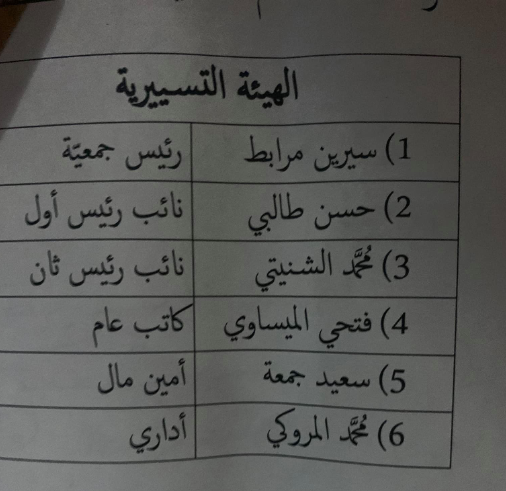 الهيئة التسييرية
1) سيرين مرابط رئيس جمعيّة
2) حسن طالبي نائب رئيس أول
3) مُحَمَّد الشنيتي نائب رئيس ثان
4) فتحي الميساوي كاتب عام
5) سعيد جمعة أمين مال
6) مُحَمَّد المروكي أداري